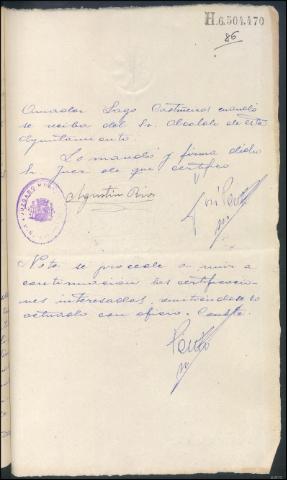 H.6.504.470
86
Amador Lago Castiñeiras cuando
se reciba del Sr. Alcalde de este
Ayuntamiento.
Lo mandó y firma dicho
Sr. Juez de que certifico
Agustin Rios
Nota se procede a unir a
continuacion las certificacio-
nes interesadas, remitiendose lo
actuado con oficio. Conste.